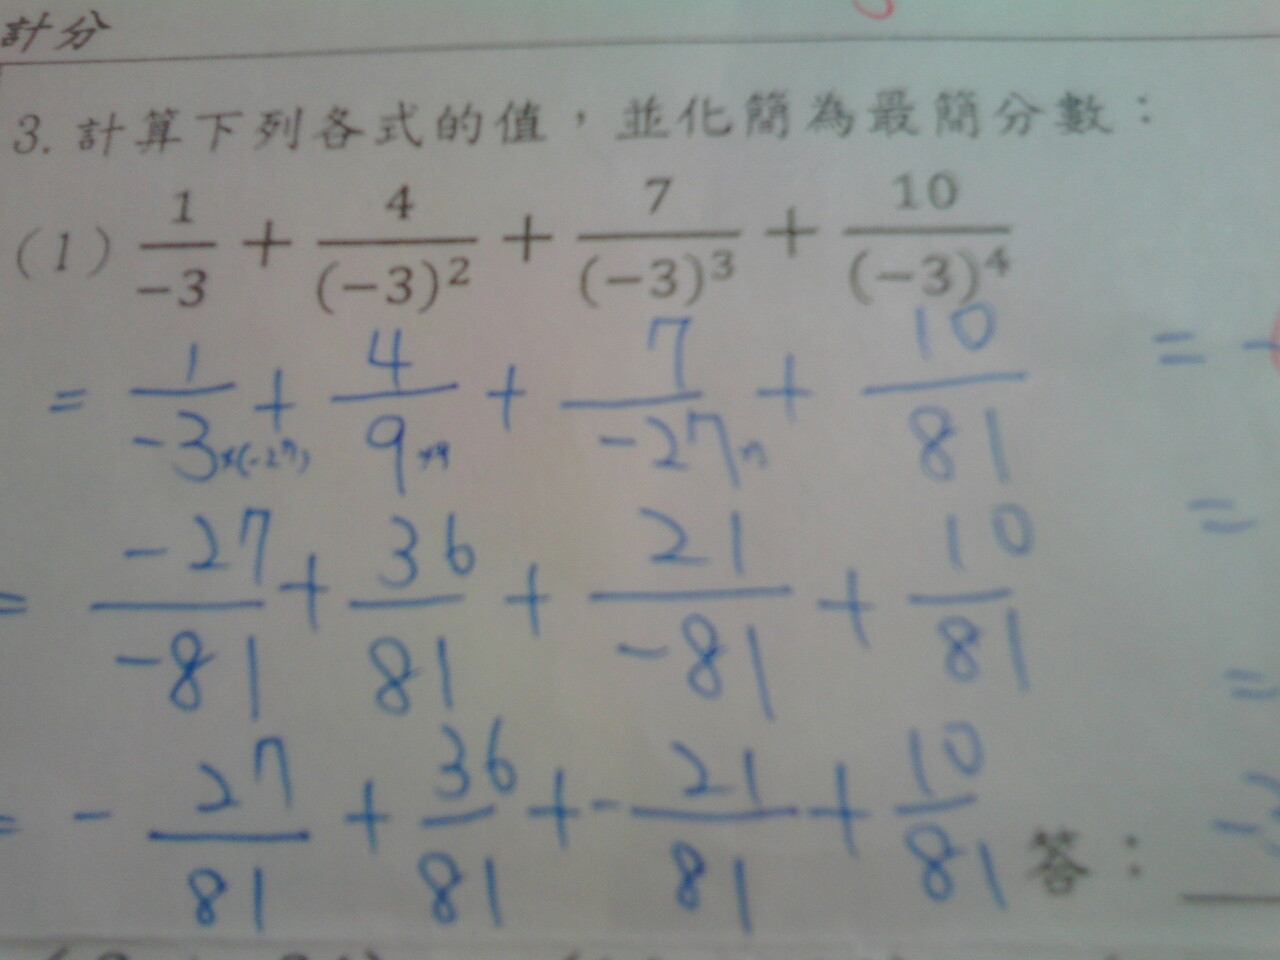 計分
3. 計算下列各式的值，並化簡為最簡分數：
(1) 1/-3 + 4/(-3)² + 7/(-3)³ + 10/(-3)⁴
= 1/-3×(-27) + 4/9×9 + 7/-27 + 10/81 = -
= -27/-81 + 36/81 + 21/-81 + 10/81 =
= - 27/81 + 36/81 + - 21/81 + 10/81 =
答：